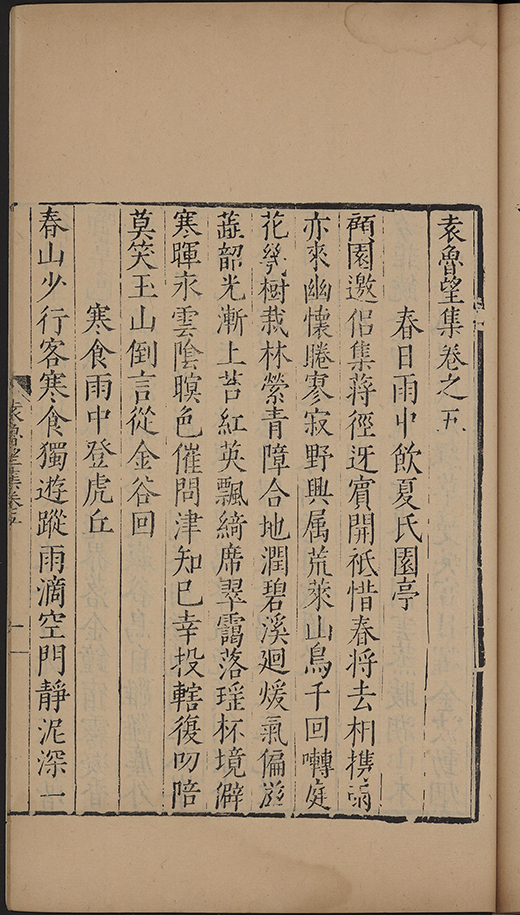 袁魯望集卷之五
春日雨中飲夏氏園亭
園邀侶集蔣徑迓賓開祗惜春将去相携雨
亦來幽懷睠寥寂野興属荒萊山鳥千回囀庭
花幾樹栽林縈青障合地潤碧溪廻煖氣偏滋
韶光漸上苔紅英飄綺席翠靄落瑶杯境僻
寒暉永雲陰暝色催問津知已幸投轄復叨陪
莫笑玉山倒言從金谷回
寒食雨中登虎丘
春山少行客寒食獨遊蹤雨滴空門静泥深一
袁魯望集卷五
一